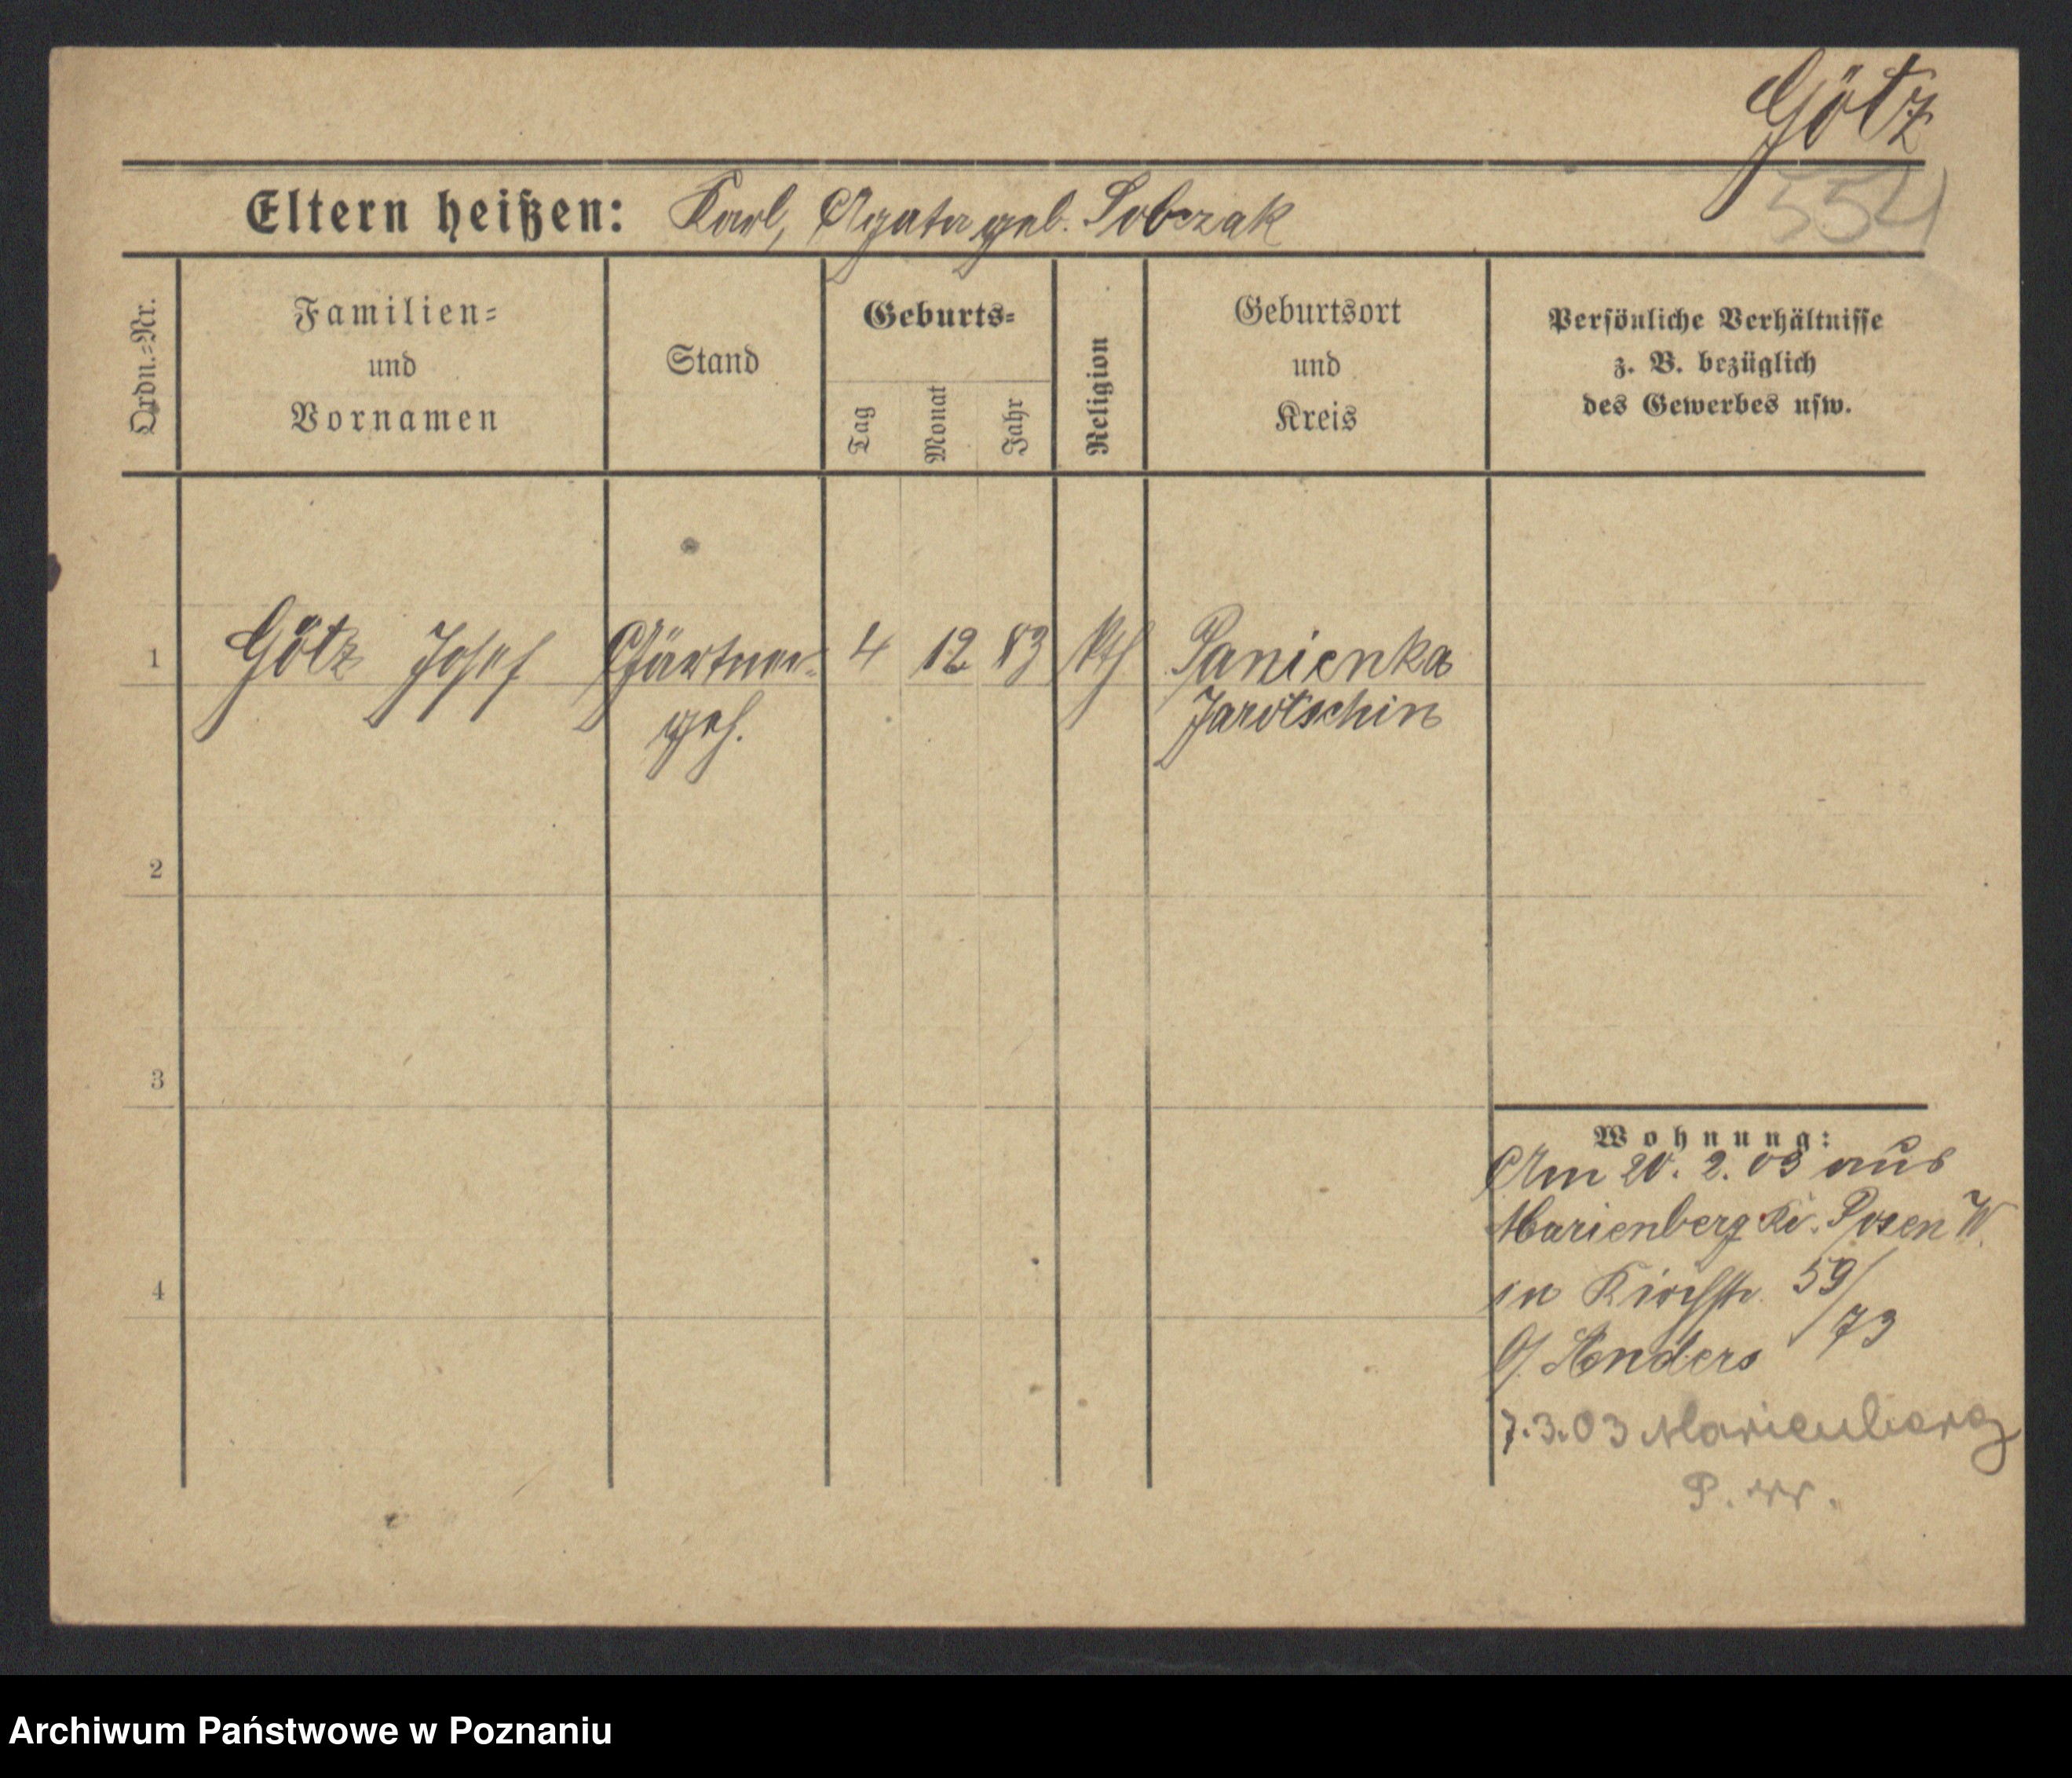 Götz
554
Eltern heißen: Karl, Agata geb. Sobczak
Ordn.=Nr.
Familien=
und
Vornamen
Stand
Geburts=
Tag
Monat
Jahr
Religion
Geburtsort
und
Kreis
Persönliche Verhältnisse
z. B. bezüglich
des Gewerbes usw.
1 Götz Josef Gärtner- 4 12 83 kth Panienka
geh. Jarotschin
2
3
4
Wohnung:
Am 20. 2. 03 aus
Marienberg Kr. Posen W.
in Kirchstr. 59/
73
b/ Anders
7.3.03 Marienberg
P. W.
Archiwum Państwowe w Poznaniu